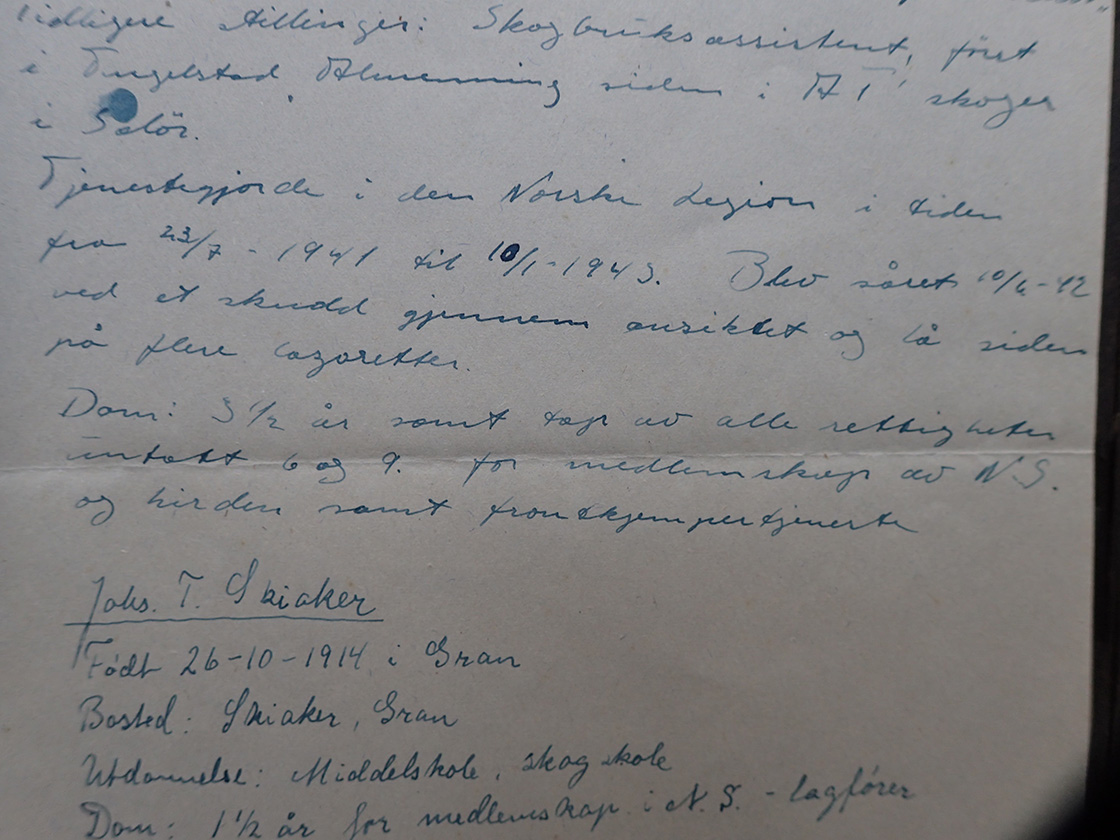 Tidligere stillinger: Skogbruksassistent, först
i Tingelstad Almenning siden i AT' skoger
i Solör.
Tjenestegjorde i den Norske Legion i tiden
fra 23/7-1941 til 10/1-1943. Blev såret 10/6-42
ved et skudd gjennem ansiktet og lå siden
på flere lazaretter.
Dom: 3 1/2 år samt tap av alle rettigheter
untatt 6 og 9. for medlemskap av N.S.
og hirden samt frontkjempertjeneste
Johs. T. Skiaker
Født 26-10-1914 i Gran
Bosted: Skiaker, Gran
Utdannelse: Middelskole, skogskole
Dom: 1 1/2 år for medlemskap i N.S. - lagfører